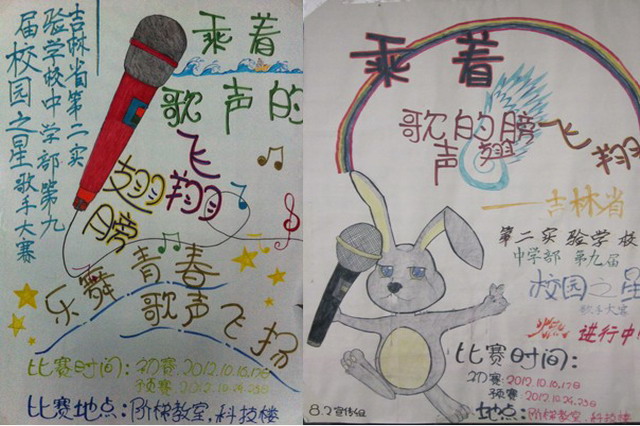 吉林省第二实
验学校中学部第九
届校园之星歌手大赛
乘着
歌声的
翅膀
飞翔
乐舞青春
歌声飞扬
比赛时间：初赛：2012.10.16,17日
预赛：2012.10.24,25日
比赛地点：阶梯教室，科技楼
乘着
歌声的翅膀飞翔
——吉林省
第二实验学校
中学部 第九届
校园之星
歌手大赛
火热进行中！
比赛时间：
初赛：2012.10.16,17日
预赛：2012.10.24,25日
地点：阶梯教室，科技楼
8.2宣传组